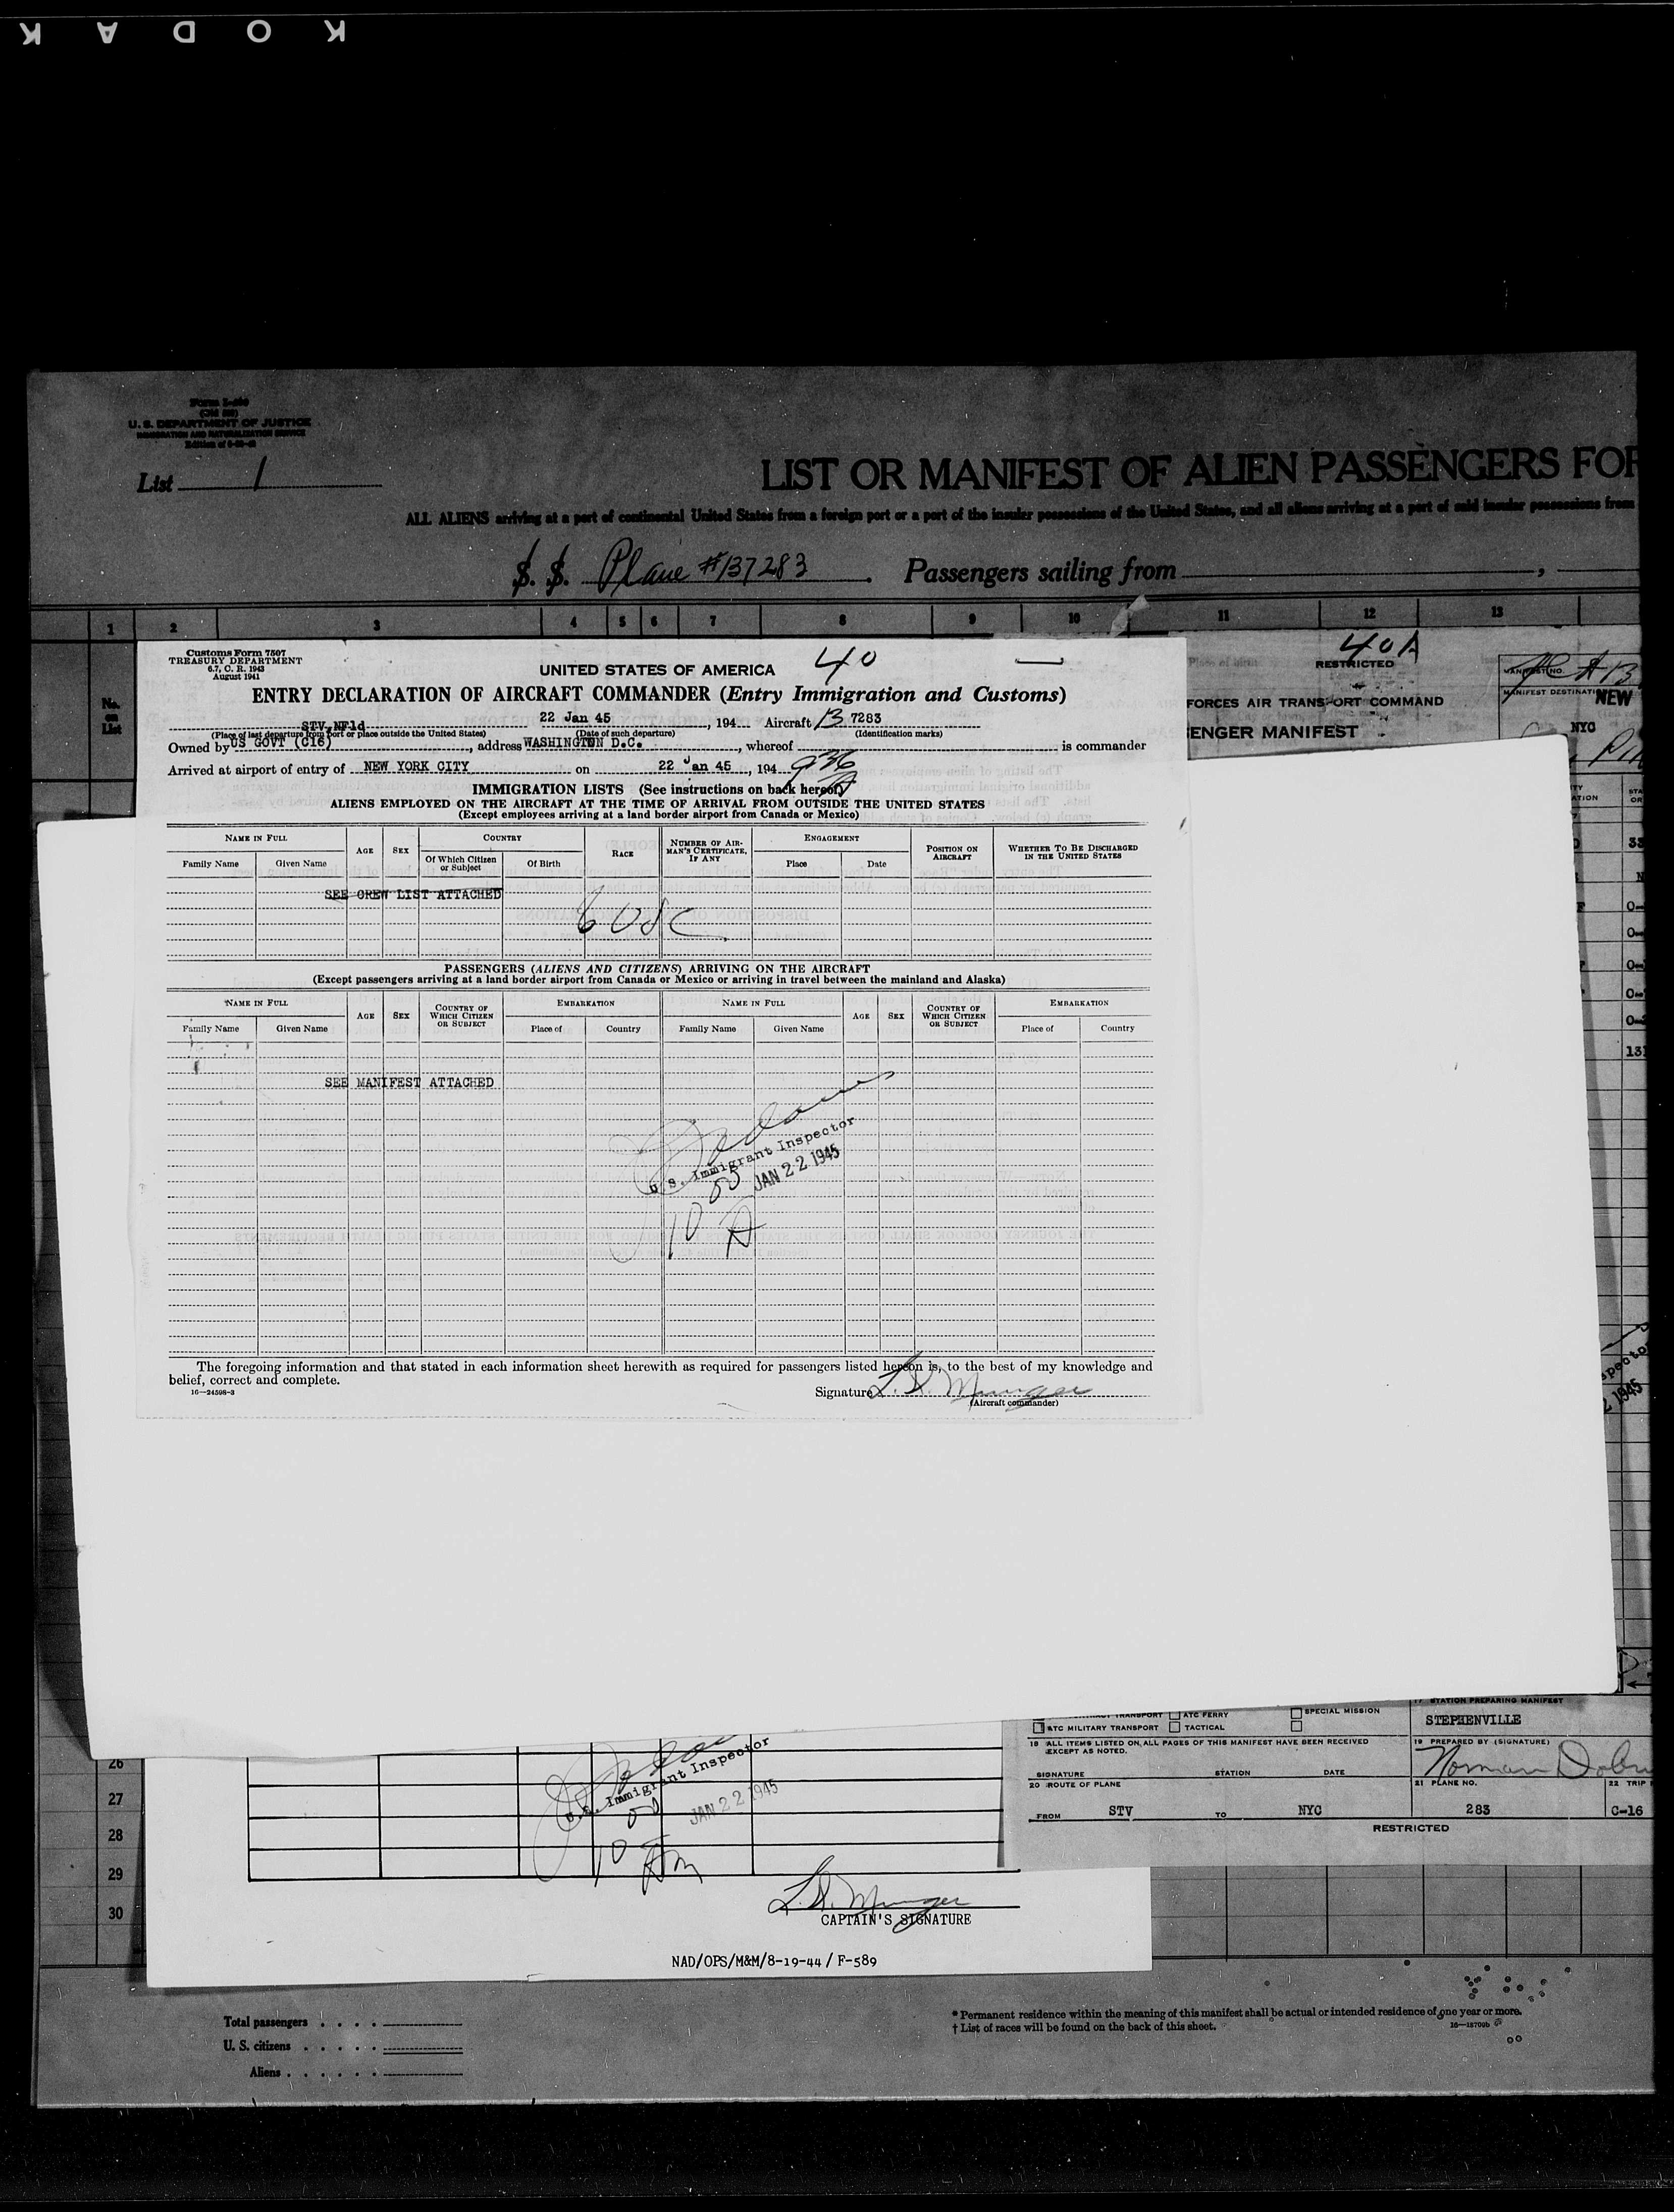 KODAK
Form I-415
U. S. DEPARTMENT OF JUSTICE
IMMIGRATION AND NATURALIZATION SERVICE
List 1
LIST OR MANIFEST OF ALIEN PASSENGERS FOR
ALL ALIENS arriving at a port of continental United States from a foreign port or a port of the insular possessions of the United States, and all aliens arriving at a port of said insular possessions from
S. S. Plane #137283 . Passengers sailing from ,
1 2 3 4 5 6 7 8 9 10 11 12 13
No. on List
Customs Form 7507
TREASURY DEPARTMENT
6.7, C. R. 1943
August 1941
UNITED STATES OF AMERICA 40
ENTRY DECLARATION OF AIRCRAFT COMMANDER (Entry Immigration and Customs)
STV, NFld 22 Jan 45, 194 Aircraft 13 7283
(Place of last departure from port or place outside the United States) (Date of such departure) (Identification marks)
Owned by US GOVT (C16), address WASHINGTON D.C., whereof is commander
Arrived at airport of entry of NEW YORK CITY on 22 Jan 45, 194 936 A
IMMIGRATION LISTS (See instructions on back hereof)
ALIENS EMPLOYED ON THE AIRCRAFT AT THE TIME OF ARRIVAL FROM OUTSIDE THE UNITED STATES
(Except employees arriving at a land border airport from Canada or Mexico)
NAME IN FULL AGE SEX COUNTRY RACE NUMBER OF AIRMAN'S CERTIFICATE, IF ANY ENGAGEMENT POSITION ON AIRCRAFT WHETHER TO BE DISCHARGED IN THE UNITED STATES
Family Name Given Name Of Which Citizen or Subject Of Birth Place Date
SEE CREW LIST ATTACHED
6 USC
PASSENGERS (ALIENS AND CITIZENS) ARRIVING ON THE AIRCRAFT
(Except passengers arriving at a land border airport from Canada or Mexico or arriving in travel between the mainland and Alaska)
NAME IN FULL AGE SEX COUNTRY OF WHICH CITIZEN OR SUBJECT EMBARKATION NAME IN FULL AGE SEX COUNTRY OF WHICH CITIZEN OR SUBJECT EMBARKATION
Family Name Given Name Place of Country Family Name Given Name Place of Country
SEE MANIFEST ATTACHED
U. S. Immigrant Inspector
JAN 22 1945
10 00 A
The foregoing information and that stated in each information sheet herewith as required for passengers listed hereon is, to the best of my knowledge and
belief, correct and complete.
16—24598-3
Signature L. S. Munger
(Aircraft commander)
40A
RESTRICTED
MANIFEST NO.
FORCES AIR TRANSPORT COMMAND
MANIFEST DESTINATION NEW
ENGER MANIFEST
NYC
17 STATION PREPARING MANIFEST
TRANSPORT ATC FERRY SPECIAL MISSION
ATC MILITARY TRANSPORT TACTICAL
STEPHENVILLE
18 ALL ITEMS LISTED ON ALL PAGES OF THIS MANIFEST HAVE BEEN RECEIVED
EXCEPT AS NOTED.
19 PREPARED BY (SIGNATURE)
Norman
SIGNATURE STATION DATE
20 ROUTE OF PLANE 21 PLANE NO. 22 TRIP
FROM STV TO NYC 283 C-16
RESTRICTED
26
27
28
29
30
U. S. Immigrant Inspector
JAN 22 1945
10 00 Am
L. S. Munger
CAPTAIN'S SIGNATURE
NAD/OPS/M&M/8-19-44 / F-589
Total passengers
U. S. citizens
Aliens
* Permanent residence within the meaning of this manifest shall be actual or intended residence of one year or more.
† List of races will be found on the back of this sheet.
16—18709b